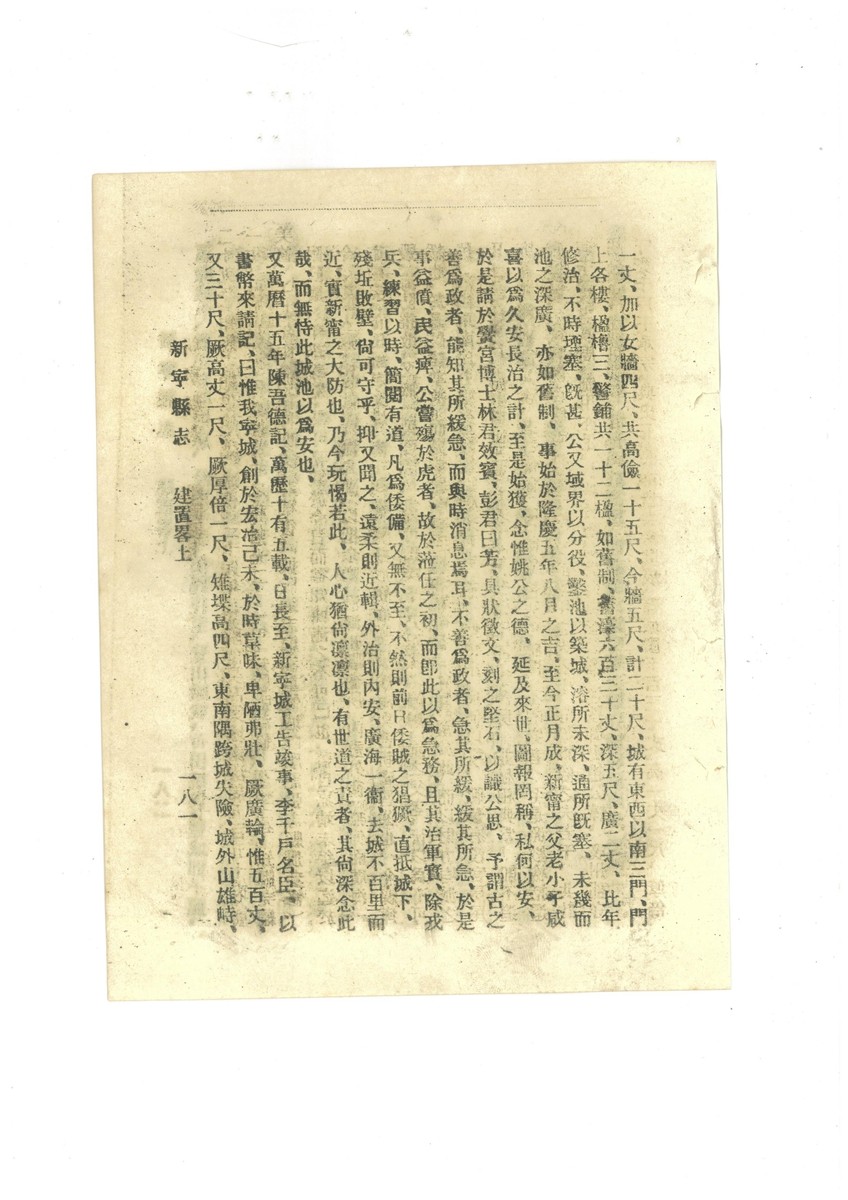 一丈、加以女牆四尺、共高儉一十五尺、今牆五尺、計二十尺、城有東西以南三門、門
上各樓、楹櫓三、警鋪共一十二楹、如舊制、舊濠六百三十丈、深五尺、廣二丈、比年
修治、不時堙塞、旣甚、公又域界以分役、鑿池以築城、濬所未深、通所旣塞、未幾而
池之深廣、亦如舊制、事始於隆慶五年八月之吉、至今正月成、新甯之父老小子咸
喜以爲久安長治之計、至是始獲、念惟姚公之德、延及來世、圖報罔稱、私何以安、
於是請於黌宮博士林君效賓、彭君曰芳、具狀徵文、刻之堅石、以識公思、予謂古之
善爲政者、能知其所緩急、而與時消息焉耳、不善爲政者、急其所緩、緩其所急、於是
事益僨、民益瘅、公嘗殤於虎者、故於蒞任之初、而卽此以爲急務、且其治軍實、除戎
兵、練習以時、簡閱有道、凡爲倭備、又無不至、不然則前日倭賊之猖獗、直抵城下、
殘坵敗壁、尙可守乎、抑又聞之、遠柔則近輯、外治則內安、廣海一衞、去城不百里而
近、實新甯之大防也、乃今玩愒若此、人心猶尙凛凛也、有世道之責者、其尙深念此
哉、而無恃此城池以爲安也、
又萬曆十五年陳吾德記、萬歷十有五載、日長至、新寧城工告竣事、李千戶名臣、以
書幣來請記、曰惟我寧城、創於宏治己未、於時草昧、卑陋弗壯、厥廣輪、惟五百丈、
又三十尺、厥高丈一尺、厥厚倍一尺、雉堞高四尺、東南隅跨城失險、城外山雄峙、
新寧縣志　建置畧上
一八一